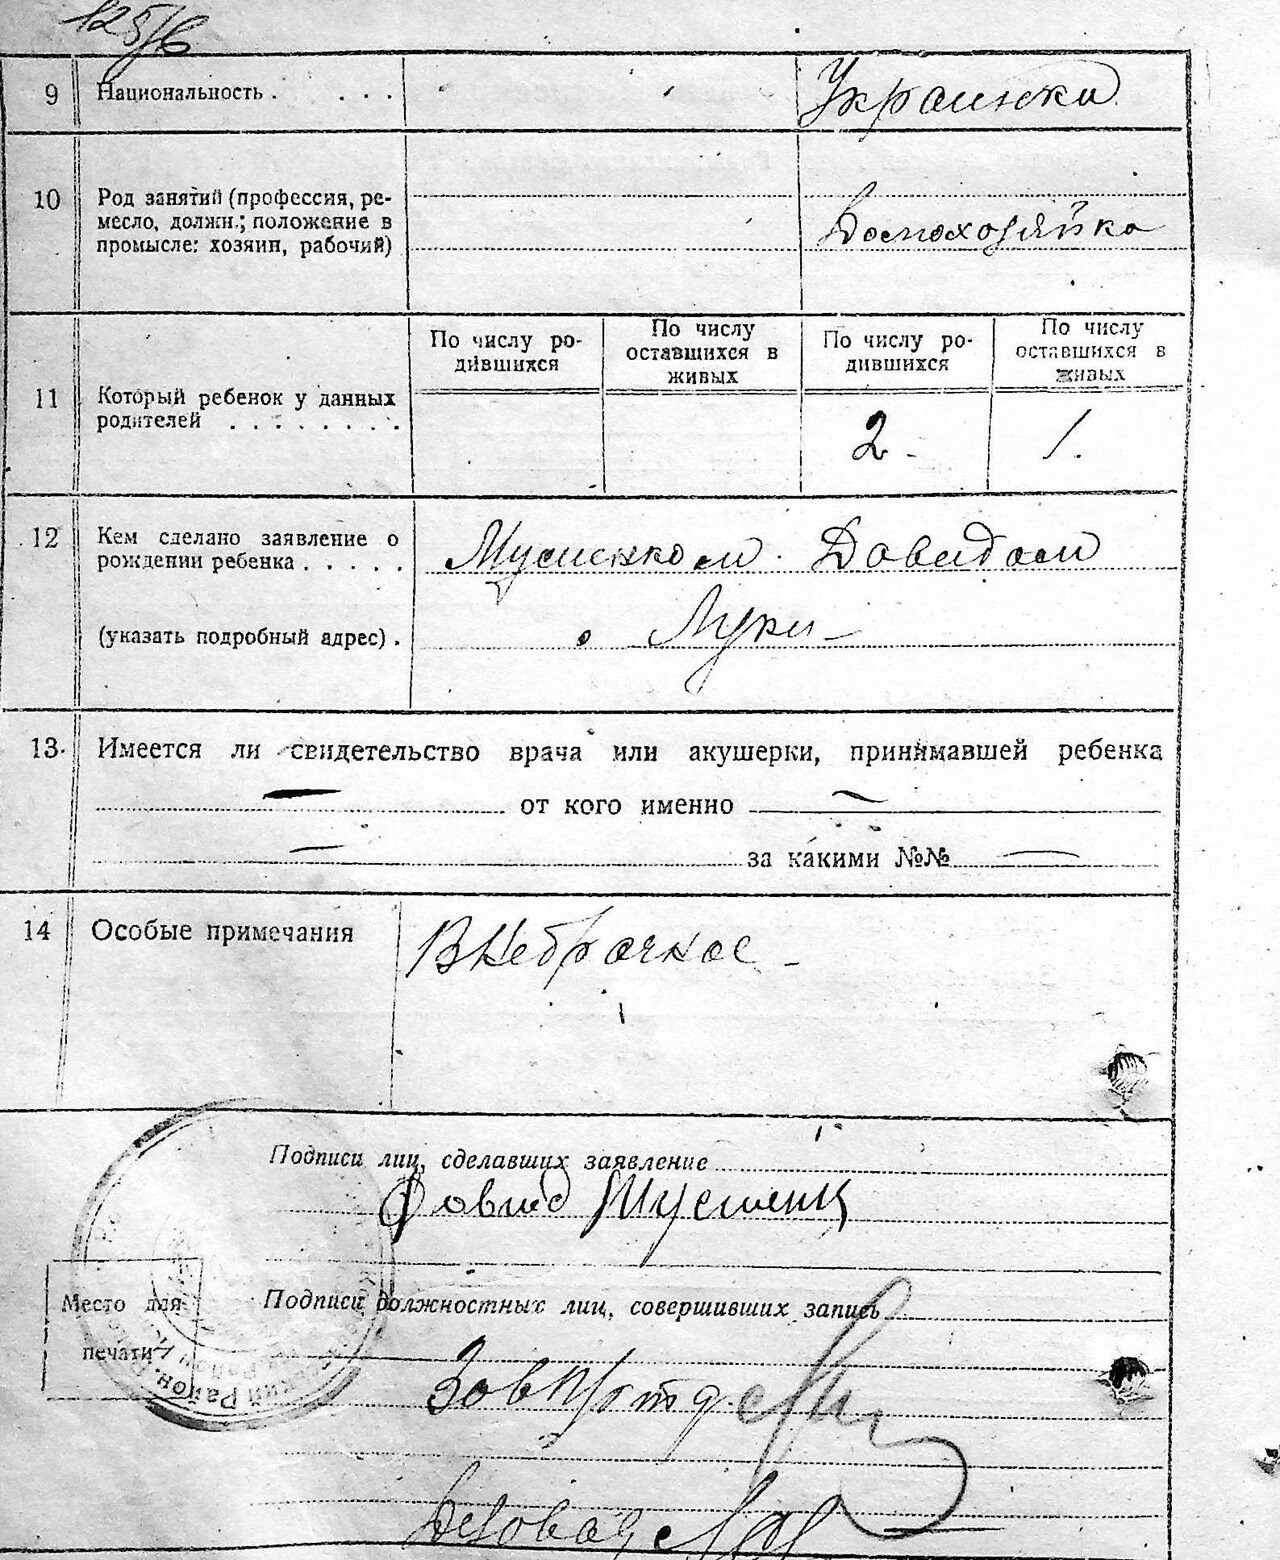 125/6
9 Национальность . . . . Украинка
10 Род занятий (профессия, ре-
месло, должн.; положение в
промысле: хозяин, рабочий)
Домохозяйка
По числу ро-
дившихся
По числу
оставшихся в
живых
По числу ро-
дившихся
По числу
оставшихся в
живых
11 Который ребенок у данных
родителей . . . . . . . .
2 - 1.
12 Кем сделано заявление о
рождении ребенка . . . . . Мусиенком Давидом
(указать подробный адрес) . Луки -
13. Имеется ли свидетельство врача или акушерки, принимавшей ребенка
— от кого именно —
— за какими №№ —
14 Особые примечания Внебрачное -
Подписи лиц, сделавших заявление
Довид Мусиенк
Подписи должностных лиц, совершивших запись
Место для
печати
Район.